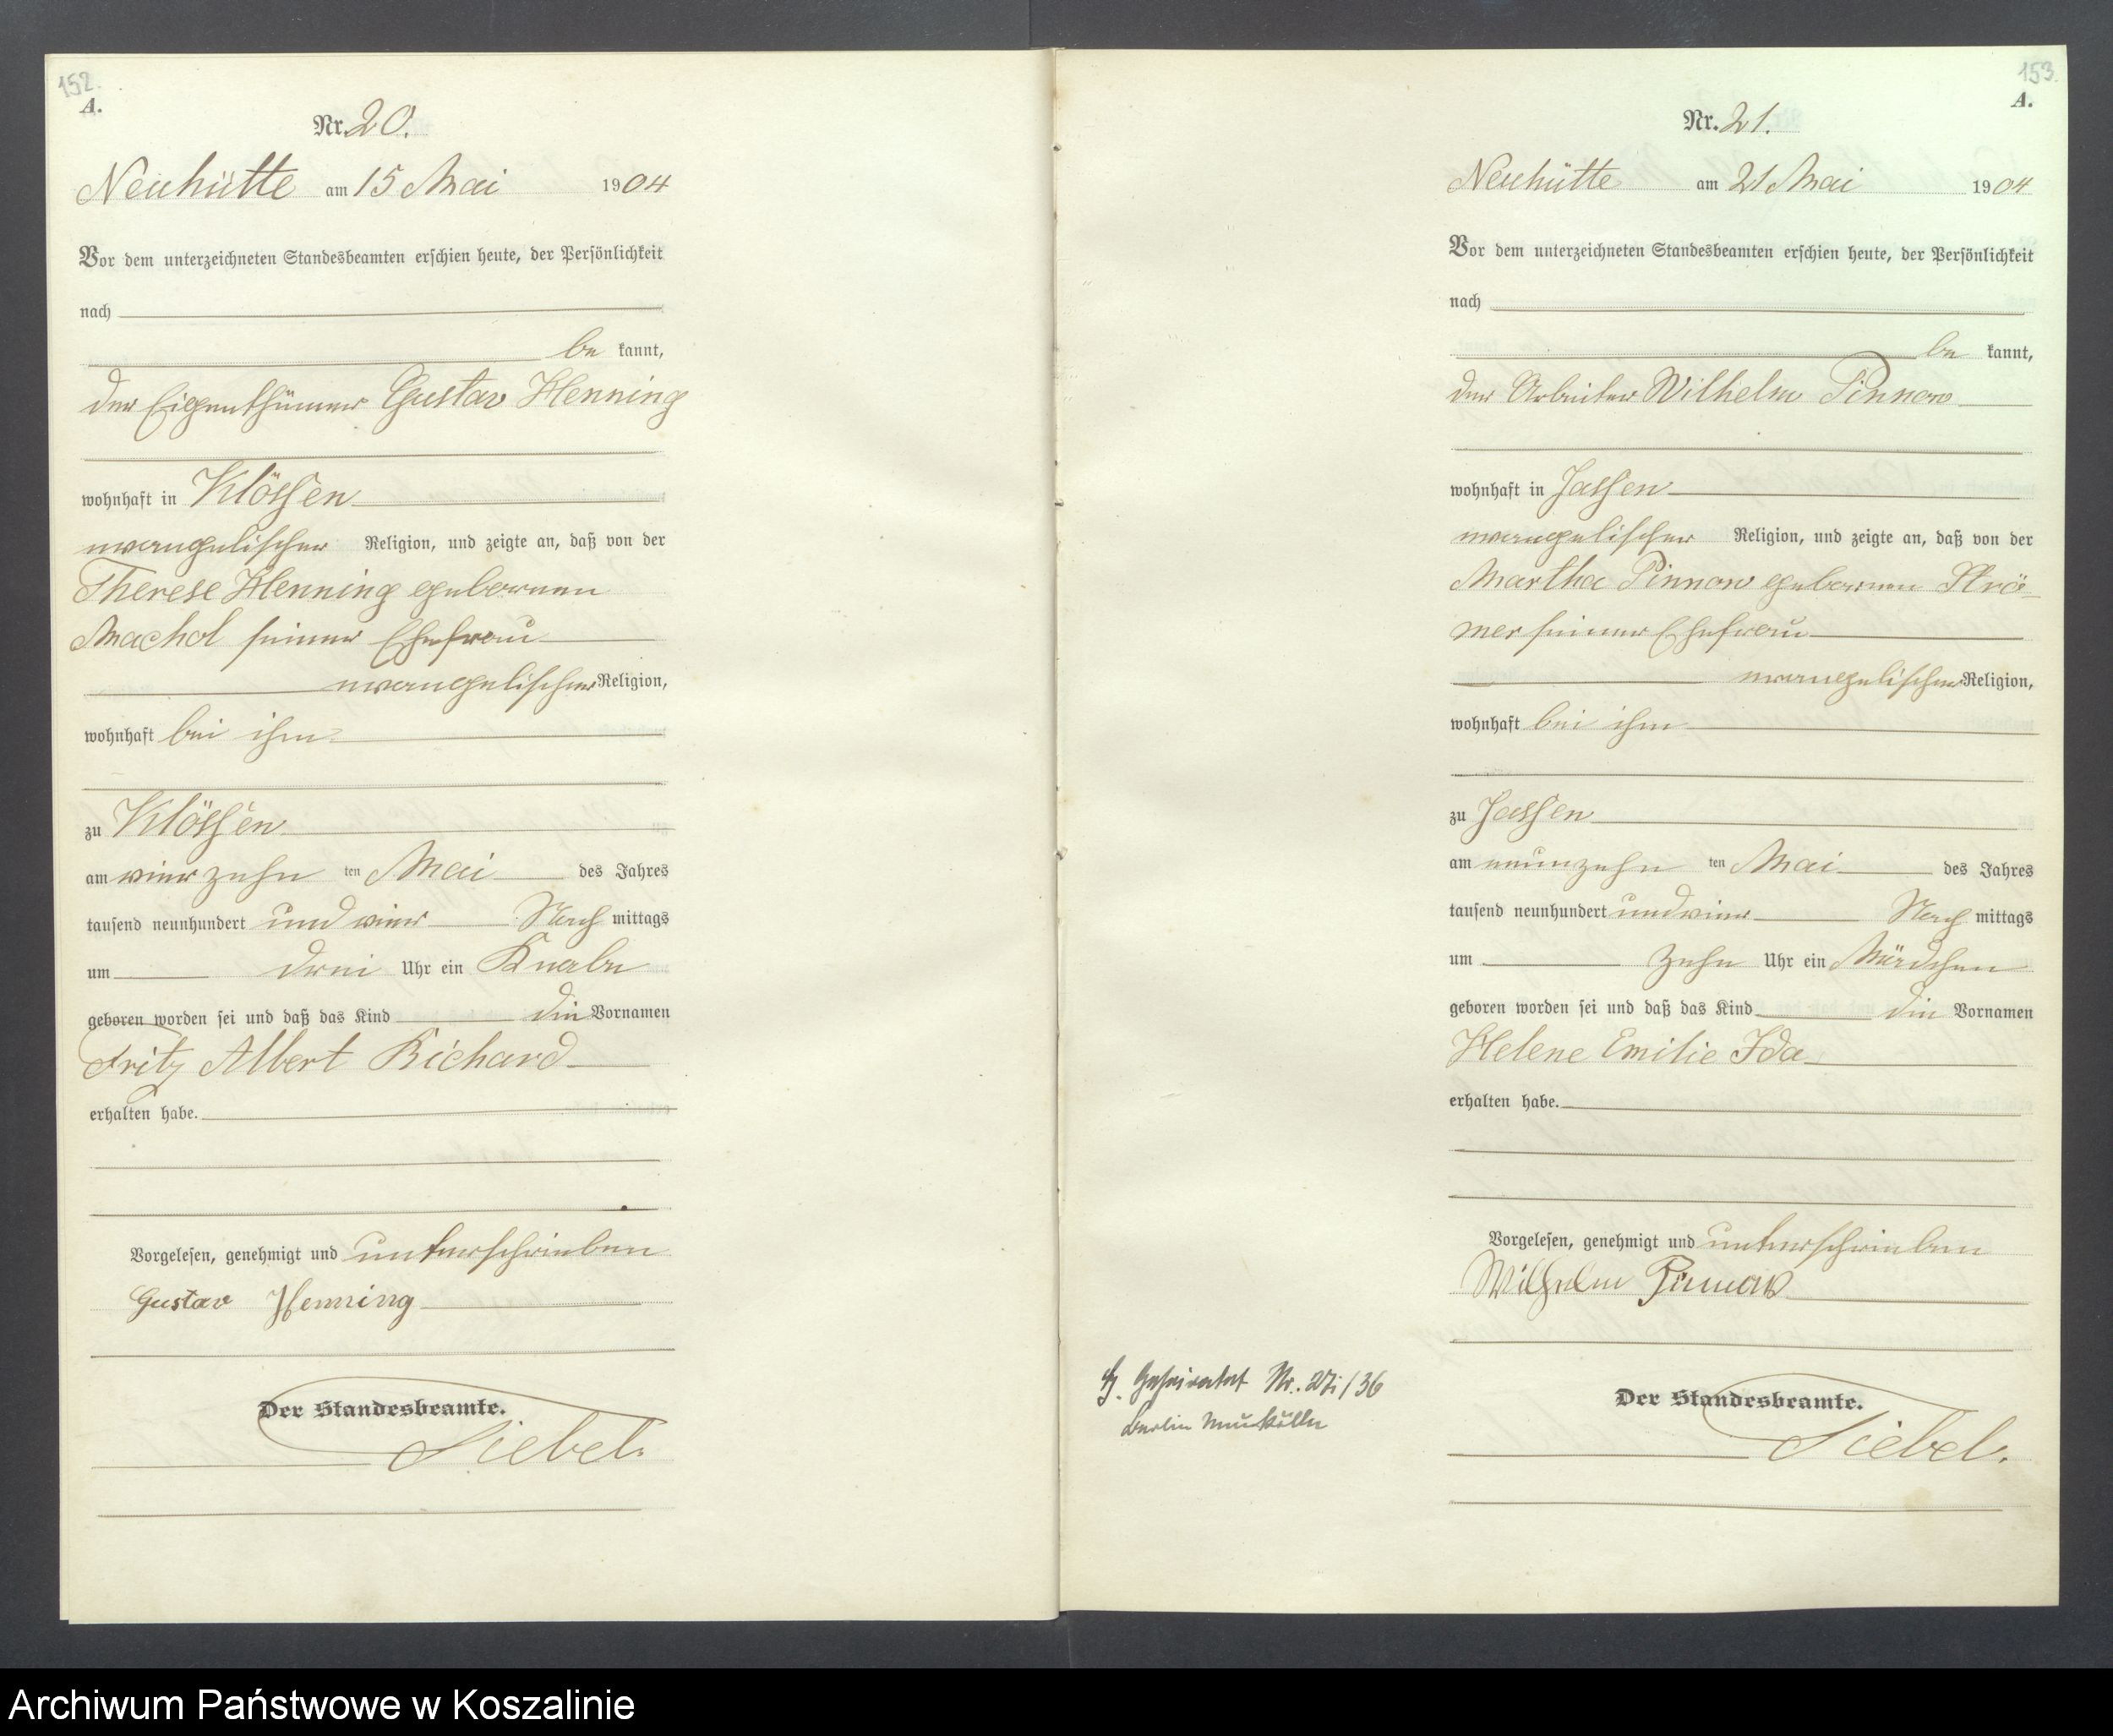 152.
A.
Nr. 20.
Neuhütte am 15 Mai 1904
Vor dem unterzeichneten Standesbeamten erschien heute, der Persönlichkeit
nach
be kannt,
der Eigenthümer Gustav Henning
wohnhaft in Klössen
evangelischer Religion, und zeigte an, daß von der
Therese Henning geborenen
Machol seiner Ehefrau
evangelischer Religion,
wohnhaft bei ihm
zu Klössen
am vierzehn ten Mai des Jahres
tausend neunhundert und vier Nach mittags
um drei Uhr ein Knabe
geboren worden sei und daß das Kind die Vornamen
Fritz Albert Richard
erhalten habe.
Vorgelesen, genehmigt und unterschrieben
Gustav Henning
Der Standesbeamte.
Siebel.
153.
A.
Nr. 21.
Neuhütte am 21 Mai 1904
Vor dem unterzeichneten Standesbeamten erschien heute, der Persönlichkeit
nach
be kannt,
der Arbeiter Wilhelm Pinnow
wohnhaft in Jassen
evangelischer Religion, und zeigte an, daß von der
Martha Pinnow geborenen Krö-
mer seiner Ehefrau
evangelischer Religion,
wohnhaft bei ihm
zu Jassen
am neunzehn ten Mai des Jahres
tausend neunhundert und vier Nach mittags
um zehn Uhr ein Mädchen
geboren worden sei und daß das Kind die Vornamen
Helene Emilie Ida
erhalten habe.
Vorgelesen, genehmigt und unterschrieben
Wilhelm Pinnow
Geheiratet Nr.
/36
Berlin Neukölln
Der Standesbeamte.
Siebel.
Archiwum Państwowe w Koszalinie